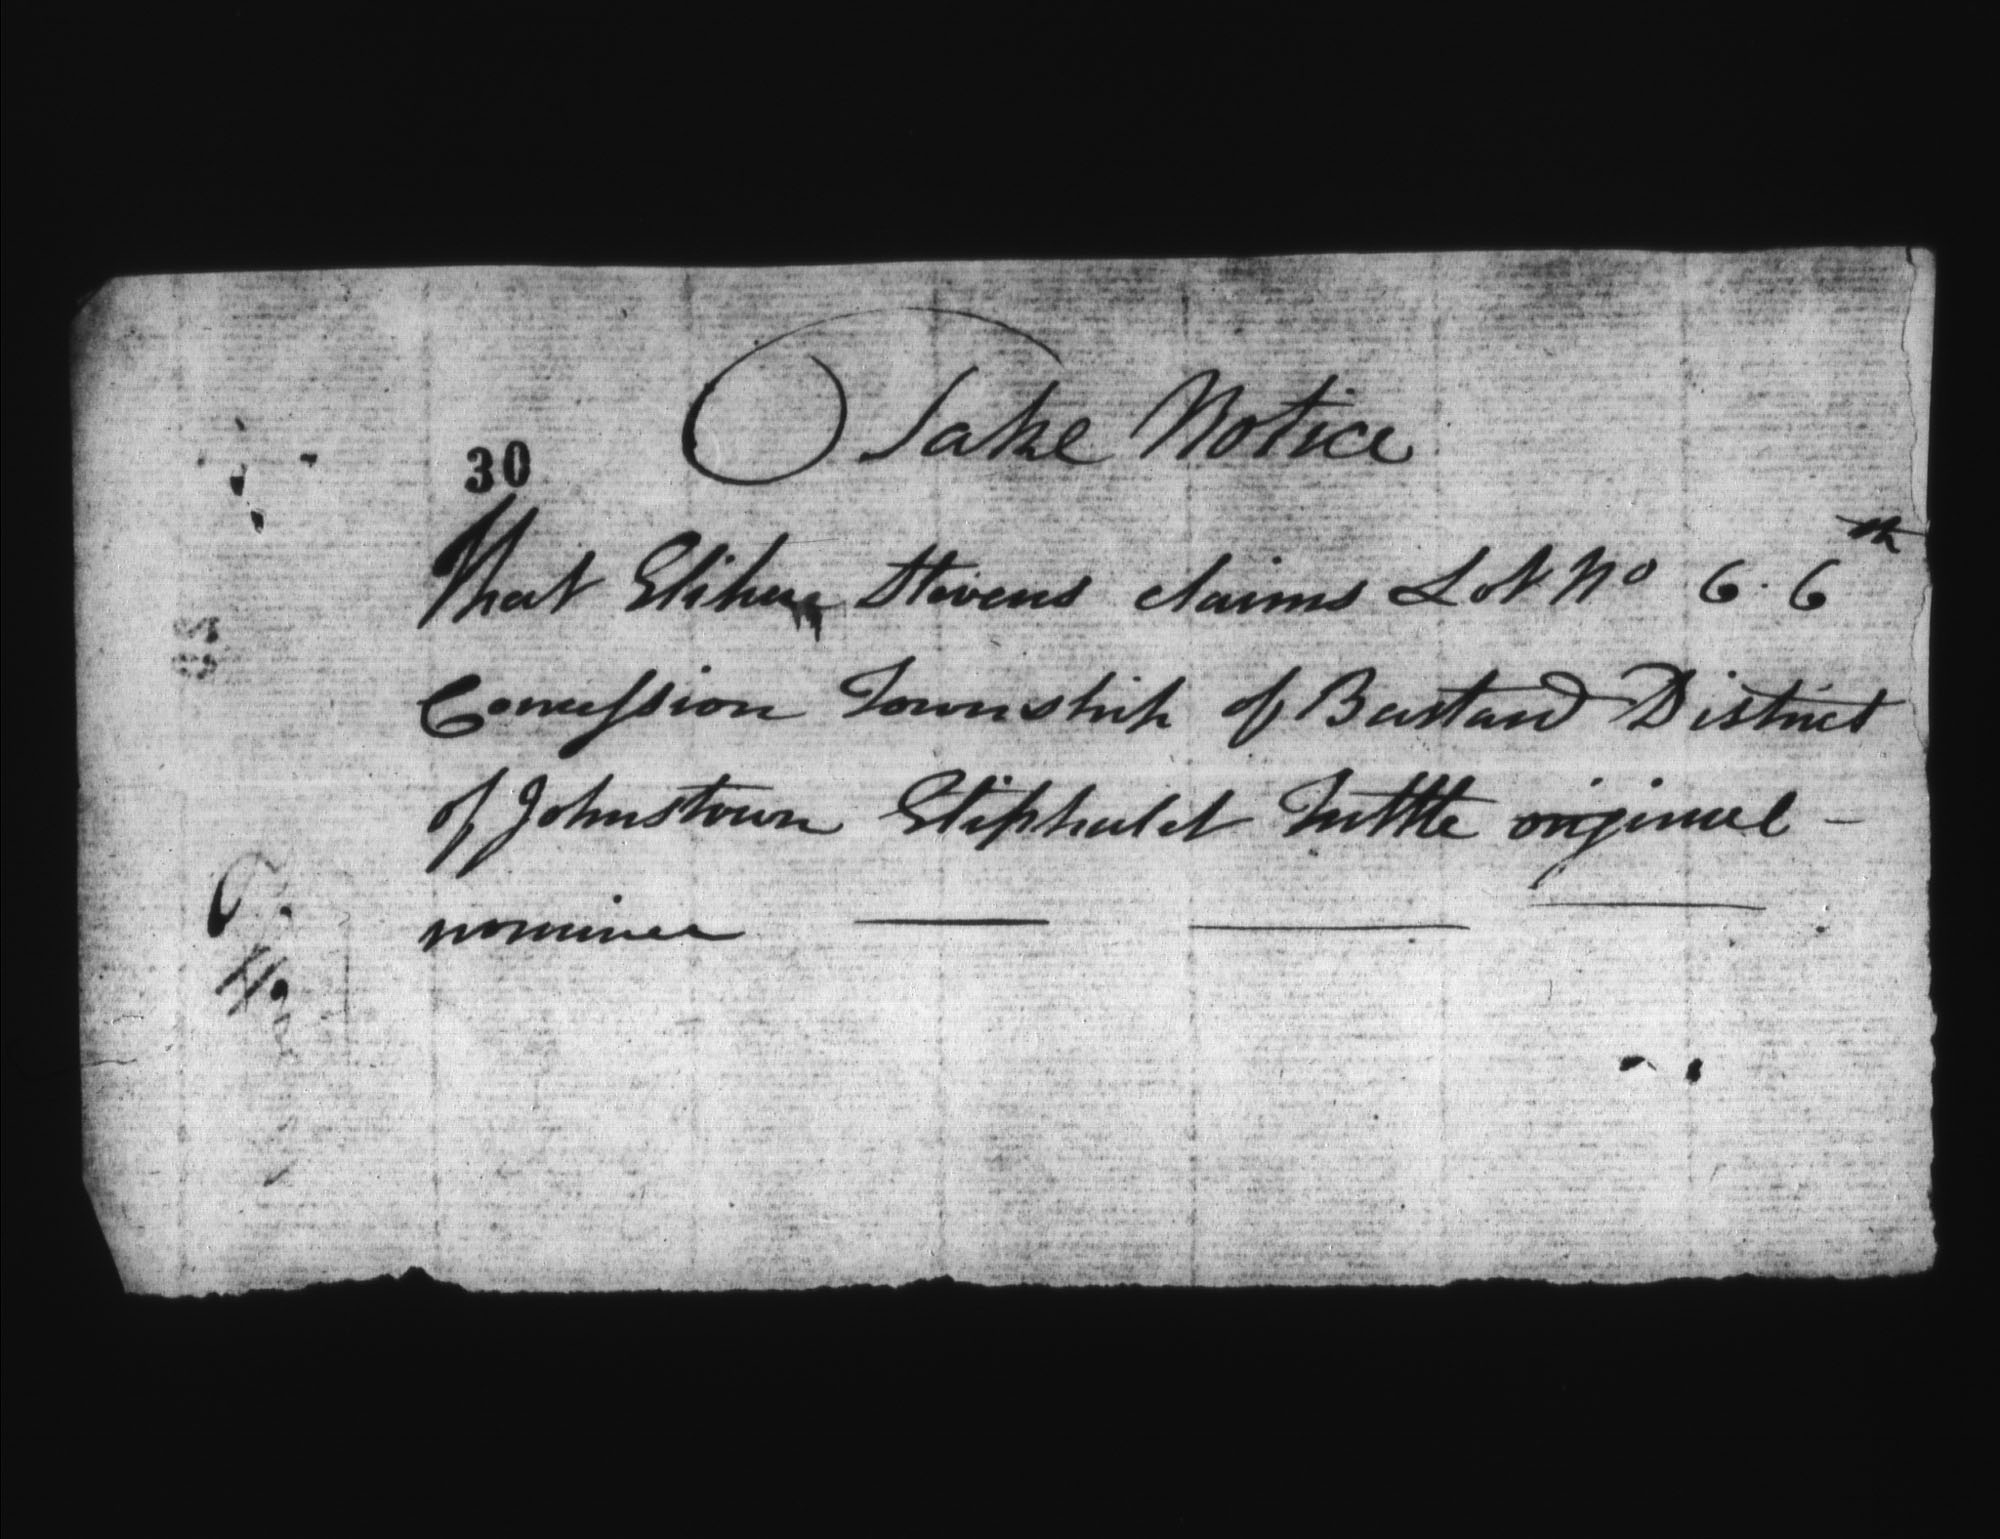 Take Notice
30
That Elihu Stevens claims Lot No 6. 6th
Concession Township of Bastard District
of Johnstown Eliphalet Tuttle original -
nominee